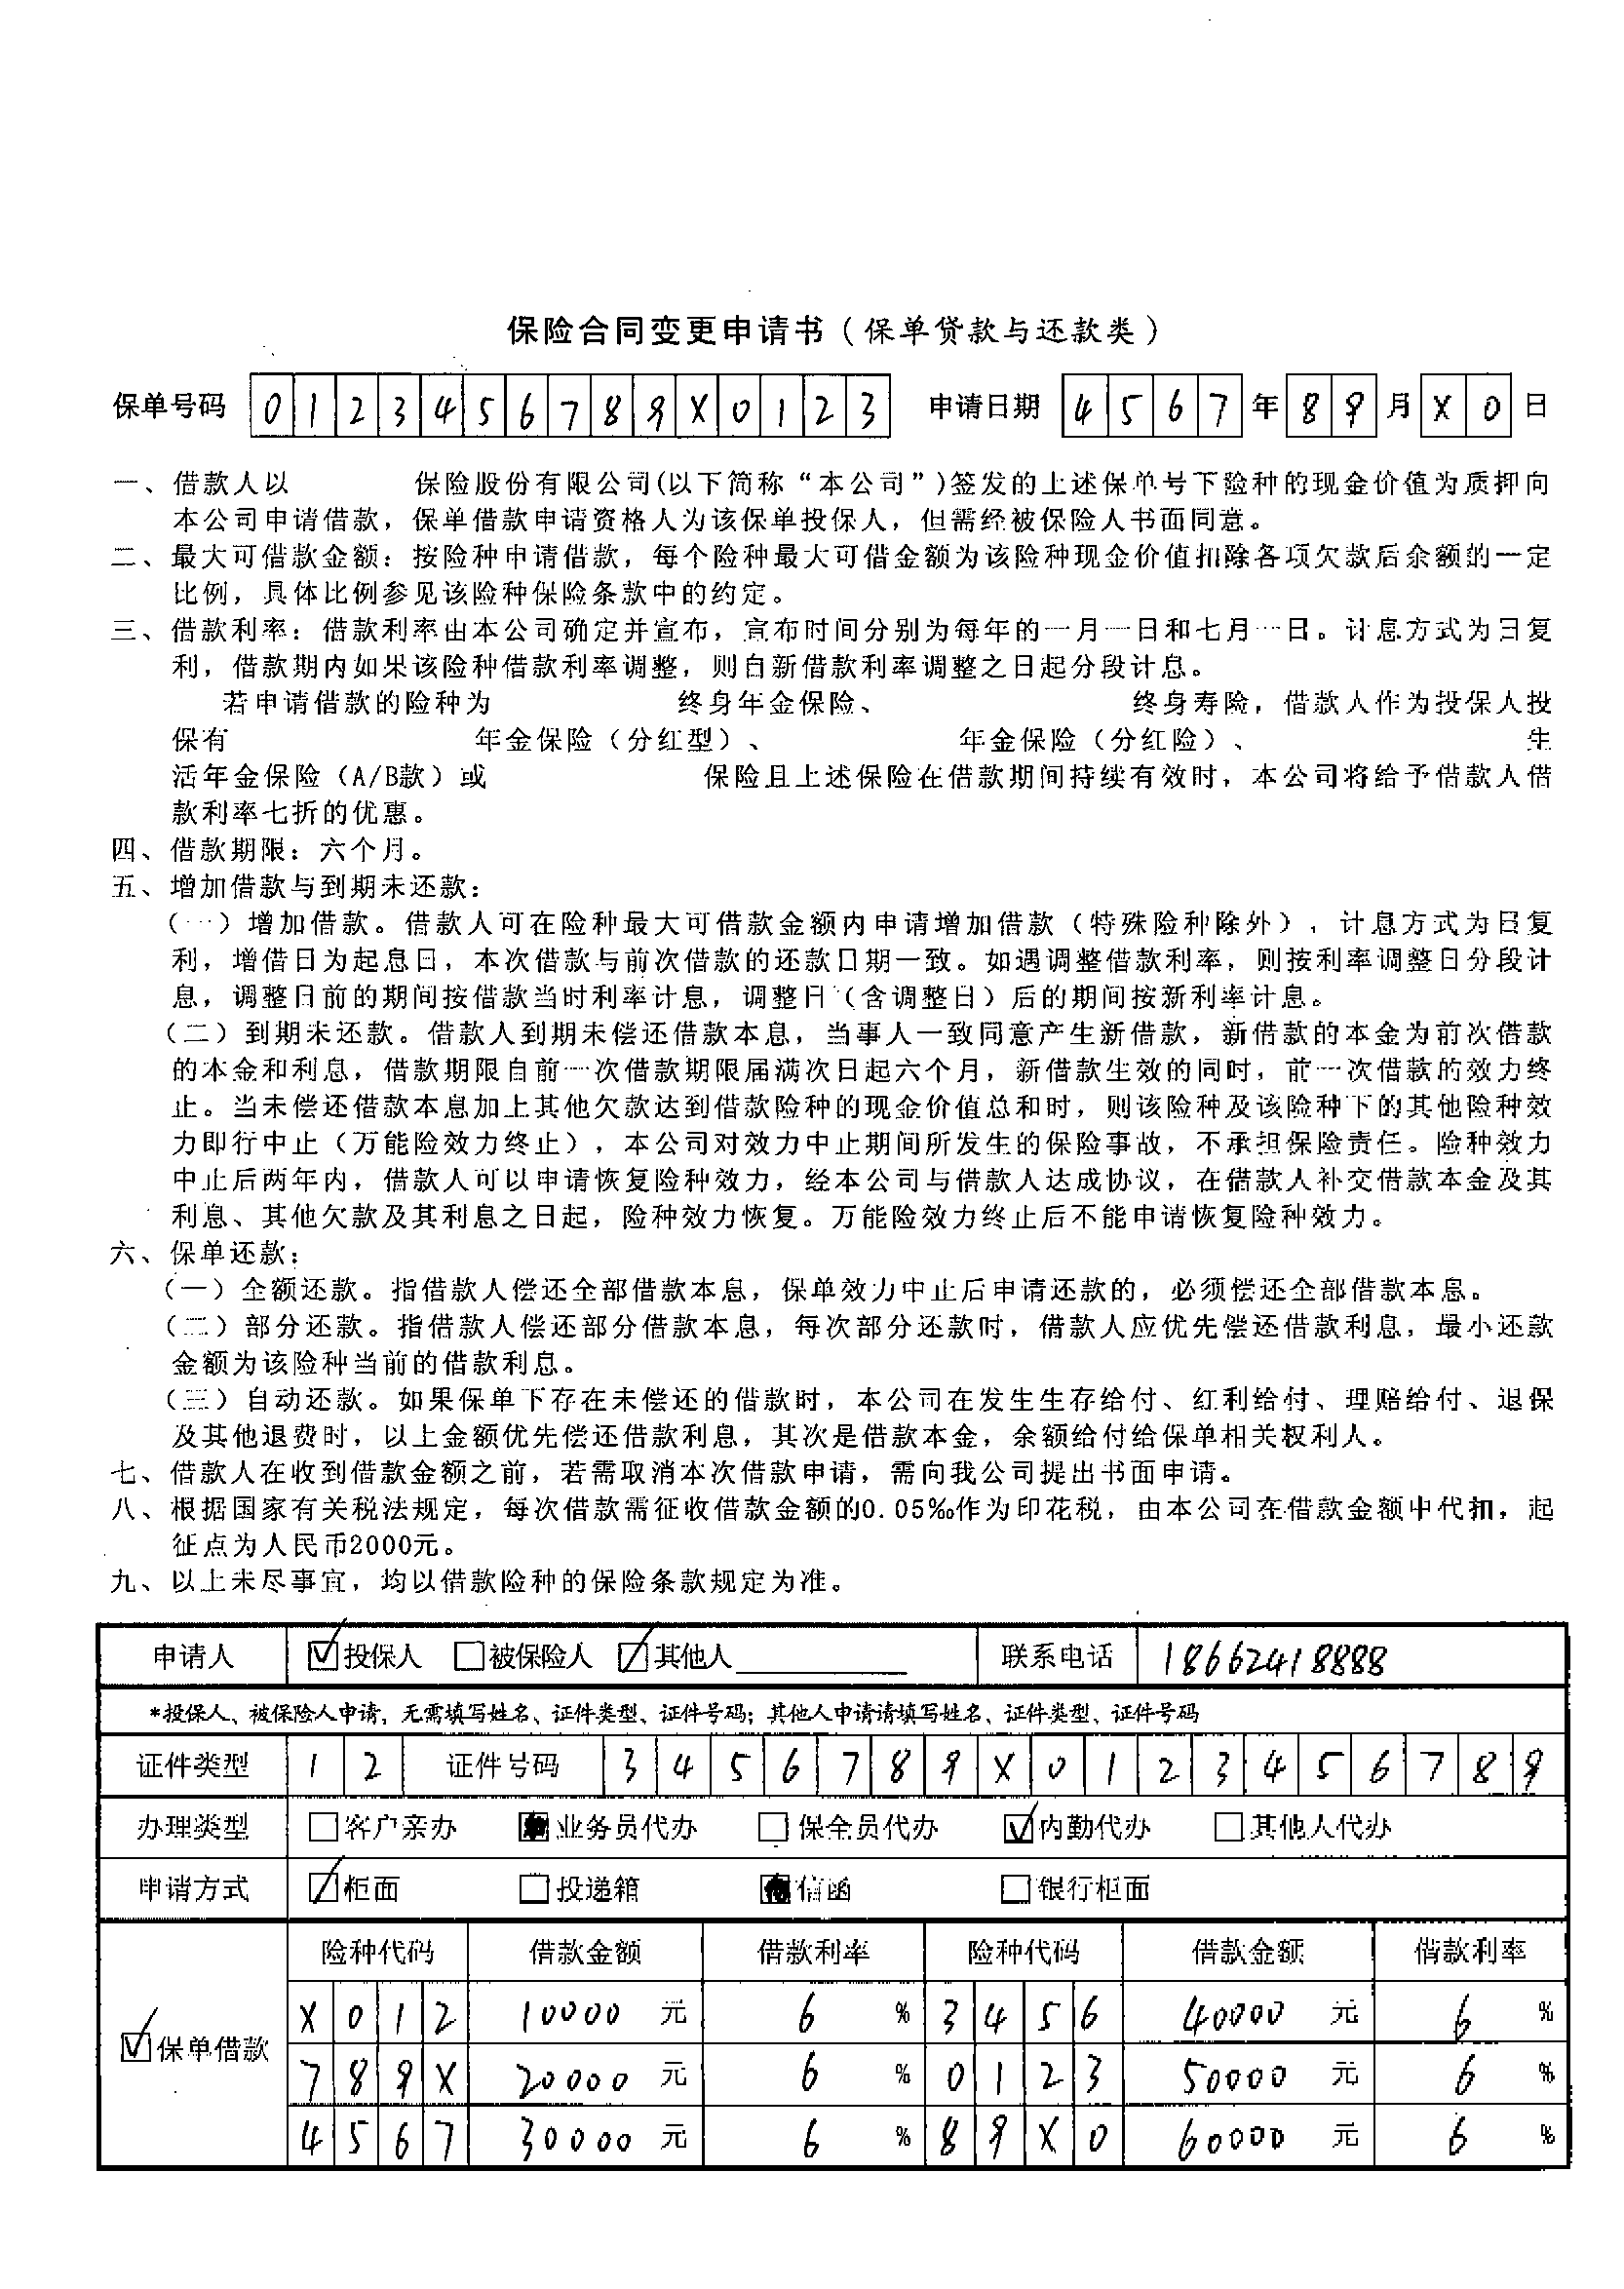 保险合同变更申请书（保单贷款与还款类）
保单号码 0 1 2 3 4 5 6 7 8 9 X 0 1 2 3 申请日期 4 5 6 7 年 8 9 月 X 0 日
一、借款人以 保险股份有限公司(以下简称“本公司”)签发的上述保单号下险种的现金价值为质押向
本公司申请借款，保单借款申请资格人为该保单投保人，但需经被保险人书面同意。
二、最大可借款金额：按险种申请借款，每个险种最大可借金额为该险种现金价值扣除各项欠款后余额的一定
比例，具体比例参见该险种保险条款中的约定。
三、借款利率：借款利率由本公司确定并宣布，宣布时间分别为每年的一月一日和七月一日。计息方式为日复
利，借款期内如果该险种借款利率调整，则自新借款利率调整之日起分段计息。
若申请借款的险种为 终身年金保险、 终身寿险，借款人作为投保人投
保有 年金保险（分红型）、 年金保险（分红险）、 生
活年金保险（A/B款）或 保险且上述保险在借款期间持续有效时，本公司将给予借款人借
款利率七折的优惠。
四、借款期限：六个月。
五、增加借款与到期未还款：
（一）增加借款。借款人可在险种最大可借款金额内申请增加借款（特殊险种除外），计息方式为日复
利，增借日为起息日，本次借款与前次借款的还款日期一致。如遇调整借款利率，则按利率调整日分段计
息，调整日前的期间按借款当时利率计息，调整日（含调整日）后的期间按新利率计息。
（二）到期未还款。借款人到期未偿还借款本息，当事人一致同意产生新借款，新借款的本金为前次借款
的本金和利息，借款期限自前一次借款期限届满次日起六个月，新借款生效的同时，前一次借款的效力终
止。当未偿还借款本息加上其他欠款达到借款险种的现金价值总和时，则该险种及该险种下的其他险种效
力即行中止（万能险效力终止），本公司对效力中止期间所发生的保险事故，不承担保险责任。险种效力
中止后两年内，借款人可以申请恢复险种效力，经本公司与借款人达成协议，在借款人补交借款本金及其
利息、其他欠款及其利息之日起，险种效力恢复。万能险效力终止后不能申请恢复险种效力。
六、保单还款：
（一）全额还款。指借款人偿还全部借款本息，保单效力中止后申请还款的，必须偿还全部借款本息。
（二）部分还款。指借款人偿还部分借款本息，每次部分还款时，借款人应优先偿还借款利息，最小还款
金额为该险种当前的借款利息。
（三）自动还款。如果保单下存在未偿还的借款时，本公司在发生生存给付、红利给付、理赔给付、退保
及其他退费时，以上金额优先偿还借款利息，其次是借款本金，余额给付给保单相关权利人。
七、借款人在收到借款金额之前，若需取消本次借款申请，需向我公司提出书面申请。
八、根据国家有关税法规定，每次借款需征收借款金额的0.05‰作为印花税，由本公司在借款金额中代扣，起
征点为人民币2000元。
九、以上未尽事宜，均以借款险种的保险条款规定为准。
申请人 ☑投保人 □被保险人 ☑其他人 联系电话 18662418888
*投保人、被保险人申请，无需填写姓名、证件类型、证件号码；其他人申请请填写姓名、证件类型、证件号码
证件类型 1 2 证件号码 3 4 5 6 7 8 9 X 0 1 2 3 4 5 6 7 8 9
办理类型 □客户亲办 ■业务员代办 □保全员代办 ☑内勤代办 □其他人代办
申请方式 ☑柜面 □投递箱 ■信函 □银行柜面
险种代码 借款金额 借款利率 险种代码 借款金额 借款利率
X 0 1 2 10000 元 6 % 3 4 5 6 40000 元 6 %
☑保单借款 7 8 9 X 20000 元 6 % 0 1 2 3 50000 元 6 %
4 5 6 7 30000 元 6 % 8 9 X 0 60000 元 6 %